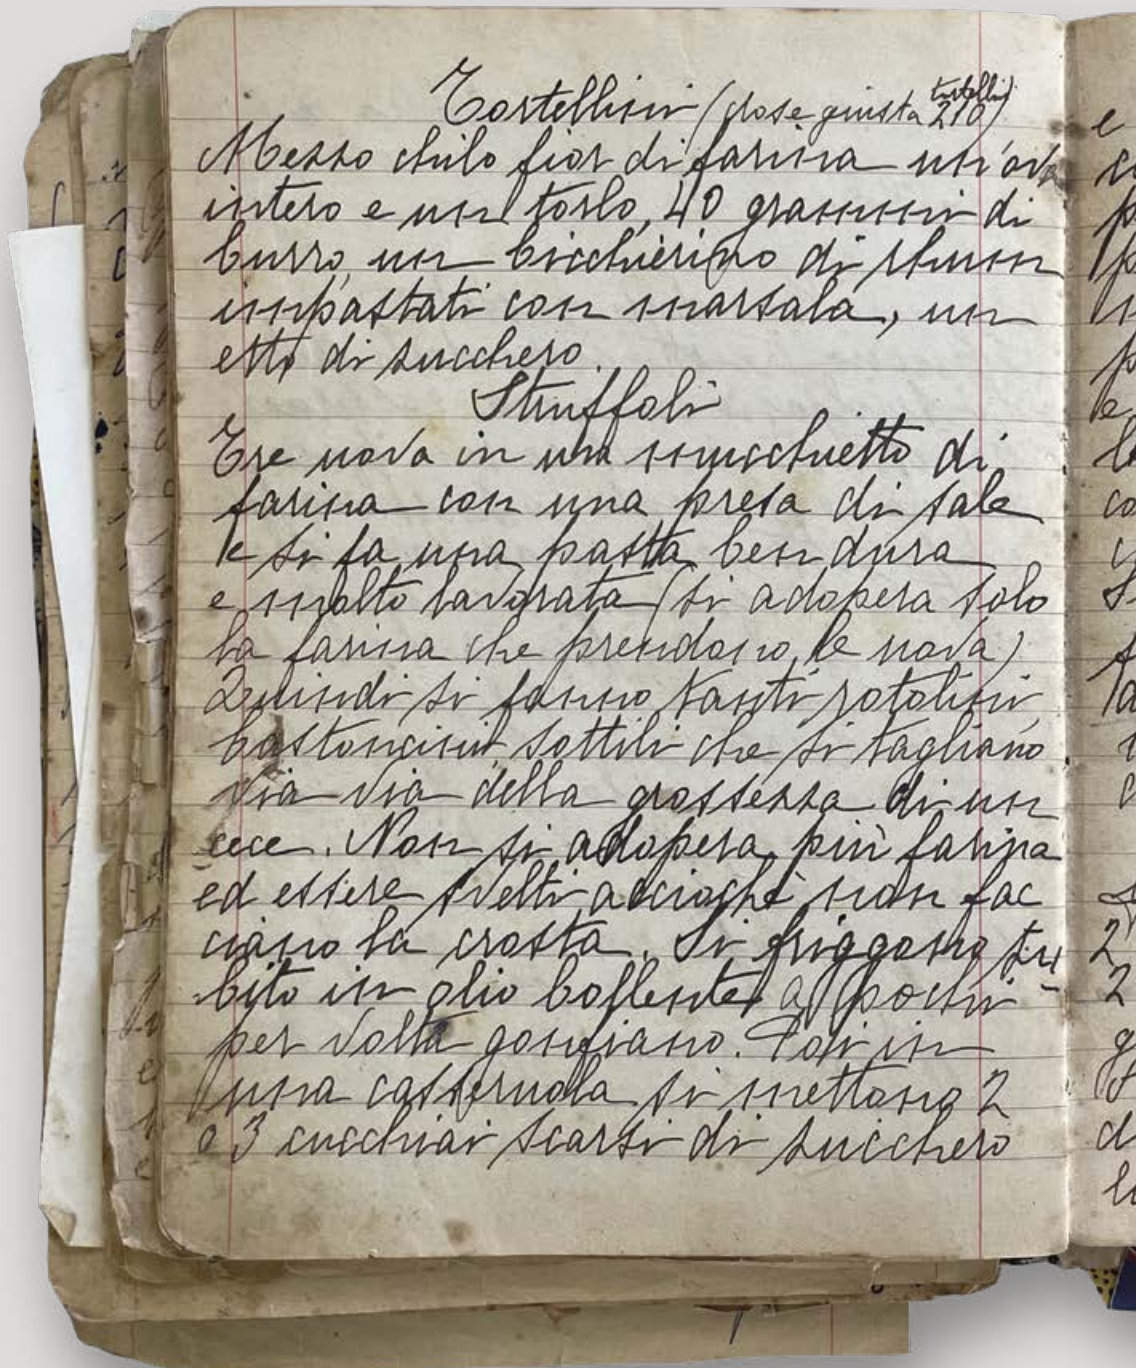 Tortellini (dose giusta 210 tortelli)
Mezzo chilo fior di farina un'ovo
intero e un torlo, 40 grammi di
burro, un bicchierino di rhum
impastati con marsala, un
etto di zucchero.
Struffoli
Tre uova in un mucchietto di
farina con una presa di sale
e si fa una pasta ben dura
e molto lavorata (si adopera solo
la farina che prendono le uova)
Quindi si fanno tanti rotolini
bastoncini sottili che si tagliano
via via della grossezza di un
cece. Non si adopera più farina
ed essere svelti acciochè non fac
ciano la crosta. Si friggono su
bito in olio bollente a pochi
per volta gonfiano. Poi in
una casseruola si mettono 2
o 3 cucchiai scarsi di zucchero